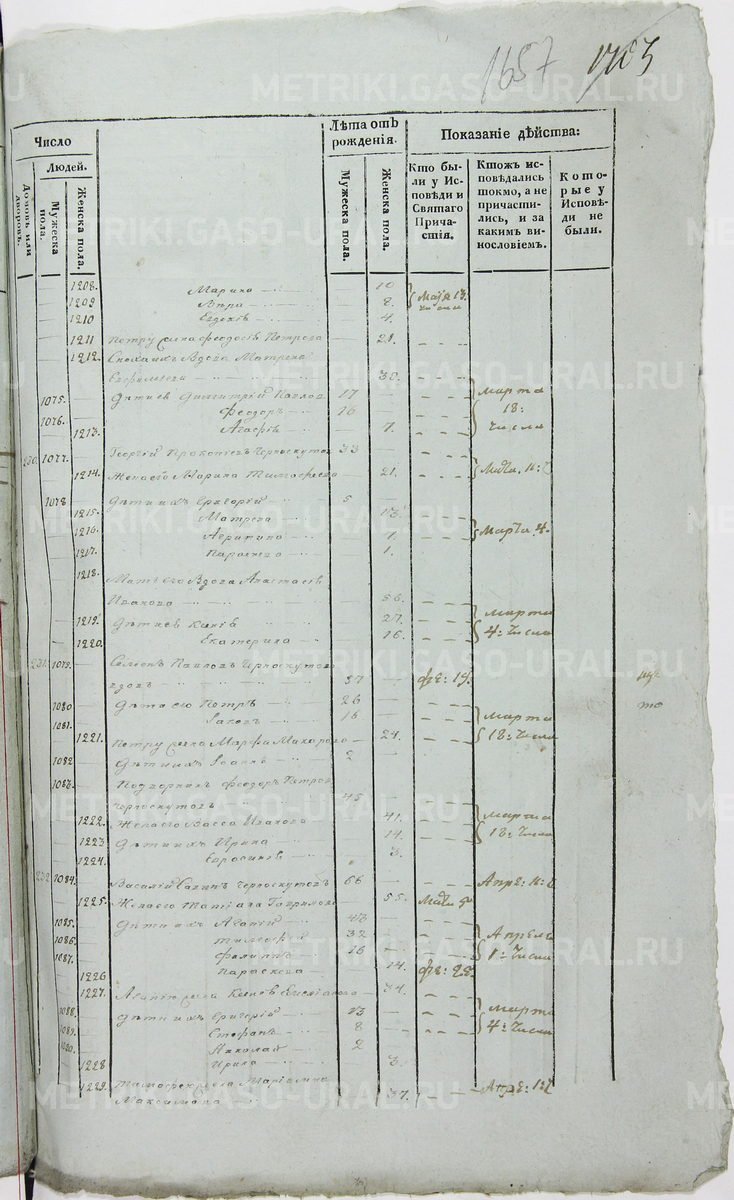 1657 1703
Число
Людей.
Домовъ или дворовъ.
Мужеска пола.
Женска пола.
Лѣта отъ рожденія.
Мужеска пола.
Женска пола.
Показаніе дѣйства:
Кто были у Исповѣди и Святаго Причастія.
Ктожъ исповѣдались токмо, а не причастились, и за какимъ винословіемъ.
Которые у Исповѣди не были.
1208. Марина 10
1209 Вѣра 8. Маія 13. числа
1210 Евдокія 4.
1211 Петру жена Феодосія Петрова 21.
1212. Сноха ихъ Вдова Матрена
Евфимьева 38.
1075. Дѣти ея Димитрій Павлов 17 Марта
1076. Феодоръ 16 18:
1213. Агафія 7. числа
230. 1077. Георгій Прокопьев Черноскутов 33
1214. Жена его Марина Тимофеева 21.
1078 Дѣти ихъ Григорій 5
1215. Матрена
1216. Агрипина 7. Марта 4.
1217. Параскева 1.
1218. Мать его Вдова Анастасія
Иванова 56.
1219. Дѣти ея Ксенія 27. Марта
1220. Екатерина 16. 4: Числа
231. 1079. Симеон Павловъ Черноскутовъ
вдовъ 57 Фев: 19.
1080 Дѣти его Петръ 26
1081. Іаковъ 16 Марта
1221. Петру жена Марфа Макарова 24. 18: Числа
1082 Дѣти ихъ Іоаннъ 2
1083. Подворник Феодоръ Петров
Черноскутовъ 45
1222. Жена его Васса Иванова 41. Марта
1223 Дѣти ихъ Ирина 14. 18: Числа
1224. Евфросинія 3.
232 1084. Василій Саввин Черноскутовъ 66
1225. Жена его Татіана Гаврилова 55.
1085. Дѣти ихъ Агапій
1086. Тимофей 32 Апреля
1087. Филиппъ 16 1: Числа
1226 Параскева 14. Фев: 22.
1227. Агапія жена Ксенія 34.
1088. Дѣти ихъ Григорій 13 Марта
1089. Стефанъ 8 4: Числа
1090. Николай 2
1228 Ирина 3.
1229. Тимофея жена Маріамна
Максимова 37.